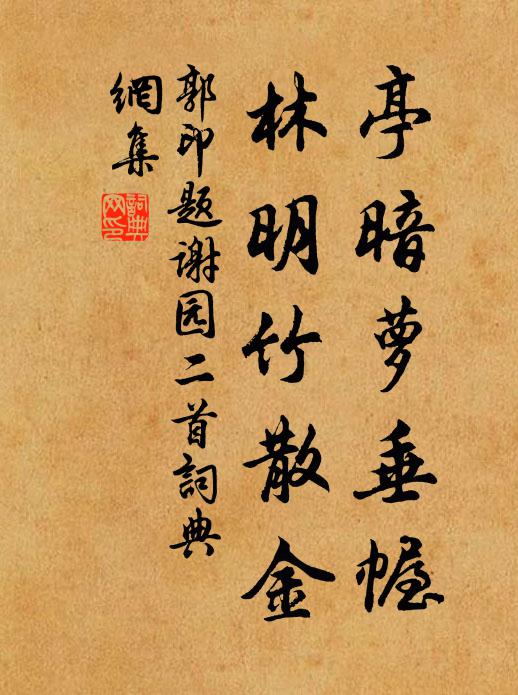 亭暗萝垂幄
林明竹散金
郭印题谢园二首詞典
網集
詞典
网印